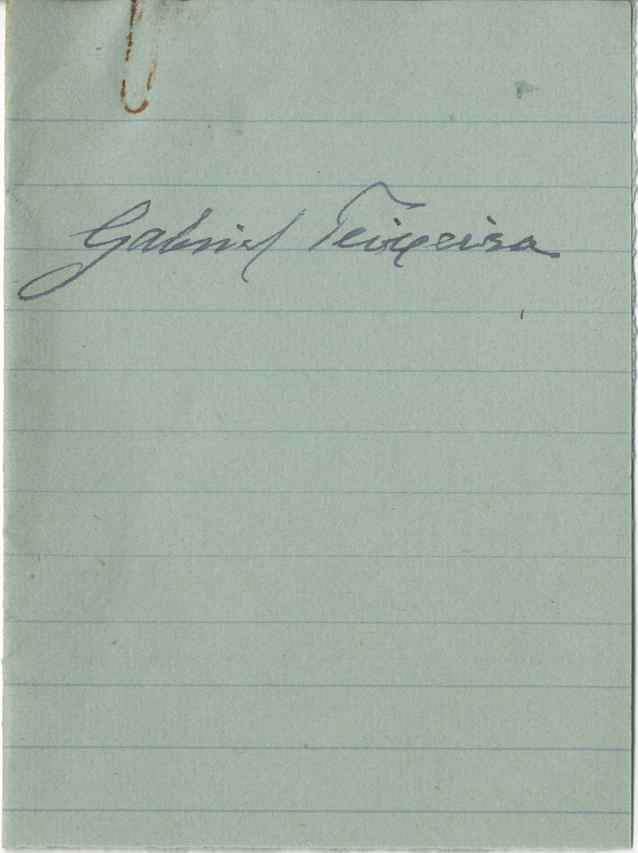 Gabriel Teixeira